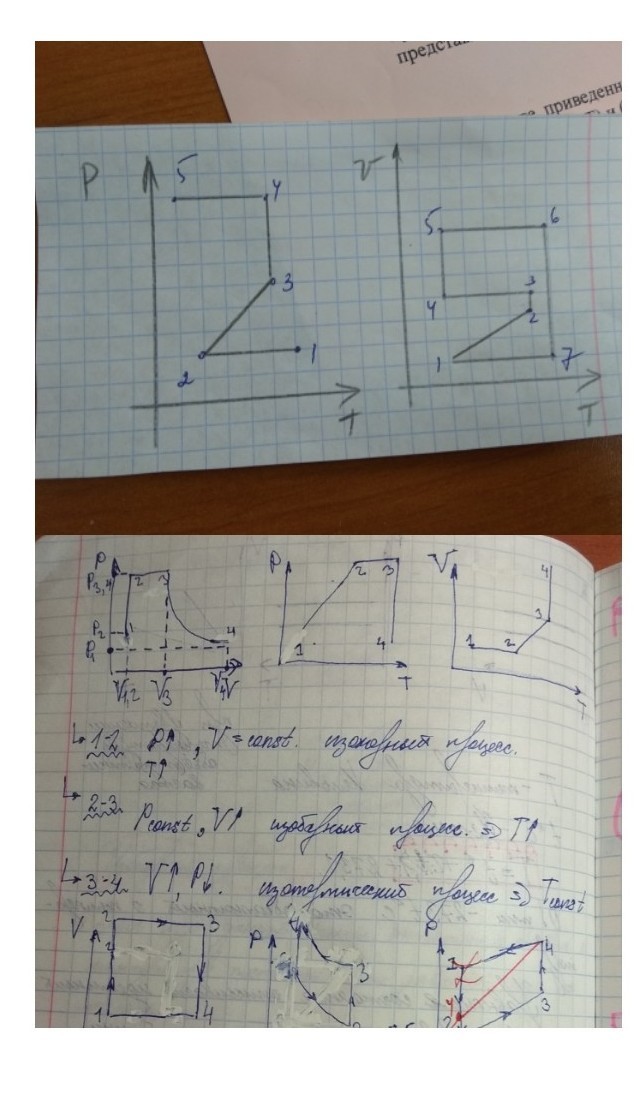 представ
приведенн
P
5
4
3
2
1
T
V
5
6
4
3
2
1
7
T
P
P3,4
P2
P1
2
3
1
4
V1,2
V3
V4
V
P
2
3
1
4
T
V
4
3
1
2
T
1-2 P↑, V=const. изохорный процесс.
T↑
2-3 Pconst, V↑ изобарный процесс. ⇒ T↑
3-4 V↑, P↓. изотермический процесс ⇒ Tconst
V
2
3
1
4
P
3
P
4
3